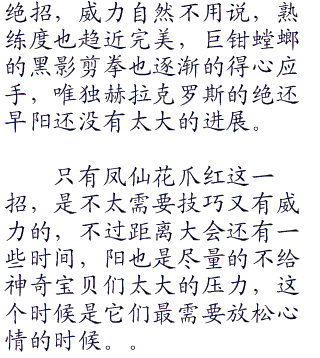 绝招，威力自然不用说，熟
练度也趋近完美，巨钳螳螂
的黑影剪拳也逐渐的得心应
手，唯独赫拉克罗斯的绝还
早阳还没有太大的进展。
只有凤仙花爪红这一
招，是不太需要技巧又有威
力的，不过距离大会还有一
些时间，阳也是尽量的不给
神奇宝贝们太大的压力，这
个时候是它们最需要放松心
情的时候。。